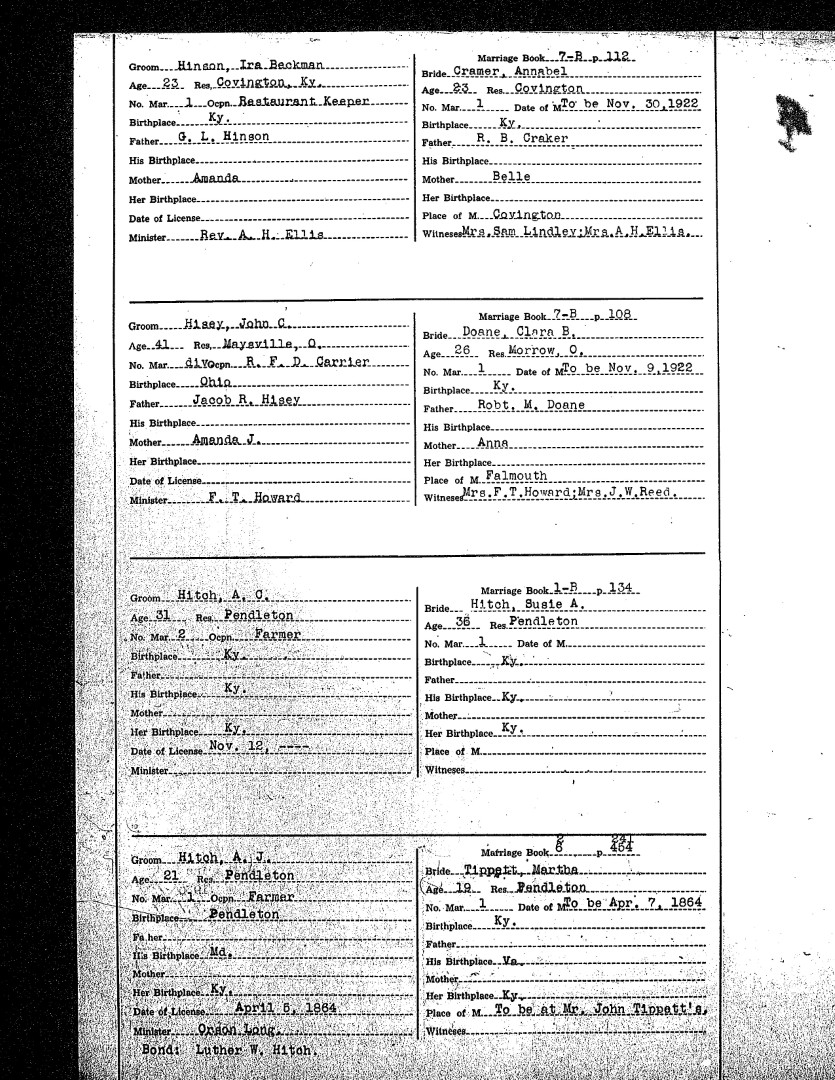 Groom Hinson, Ira Beckman
Age 23 Res. Covington, Ky.
No. Mar. 1 Ocpn. Restaurant Keeper
Birthplace Ky.
Father G. L. Hinson
His Birthplace
Mother Amanda
Her Birthplace
Date of License
Minister Rev. A. H. Ellis
Marriage Book 7-B p. 112
Bride Cramer, Annabel
Age 23 Res. Covington
No. Mar. 1 Date of M. To be Nov. 30, 1922
Birthplace Ky.
Father R. B. Craker
His Birthplace
Mother Belle
Her Birthplace
Place of M. Covington
Witneses Mrs. Sam Lindley; Mrs. A. H. Ellis.
Groom Hisey, John C.
Age 41 Res. Maysville, O.
No. Mar. div Ocpn. R. F. D. Carrier
Birthplace Ohio
Father Jacob R. Hisey
His Birthplace
Mother Amanda J.
Her Birthplace
Date of License
Minister F. T. Howard
Marriage Book 7-B p. 108
Bride Doane, Clara B.
Age 26 Res. Morrow, O.
No. Mar. 1 Date of M. To be Nov. 9, 1922
Birthplace Ky.
Father Robt. M. Doane
His Birthplace
Mother Anna
Her Birthplace
Place of M. Falmouth
Witneses Mrs. F. T. Howard; Mrs. J. W. Reed.
Groom Hitch, A. C.
Age 31 Res. Pendleton
No. Mar. 2 Ocpn. Farmer
Birthplace Ky.
Father
His Birthplace Ky.
Mother
Her Birthplace Ky.
Date of License Nov. 12, ----
Minister
Marriage Book 1-B p. 134
Bride Hitch, Susie A.
Age 36 Res. Pendleton
No. Mar. 1 Date of M.
Birthplace Ky.
Father
His Birthplace Ky.
Mother
Her Birthplace Ky.
Place of M.
Witneses
Groom Hitch, A. J.
Age 21 Res. Pendleton
No. Mar. 1 Ocpn. Farmer
Birthplace Pendleton
Father
His Birthplace Md.
Mother
Her Birthplace Ky.
Date of License April 5, 1864
Minister Orson Long.
Bond: Luther W. Hitch.
Marriage Book p.
Bride Tippett, Martha
Age 19 Res. Pendleton
No. Mar. 1 Date of M. To be Apr. 7, 1864
Birthplace Ky.
Father
His Birthplace Va.
Mother
Her Birthplace Ky.
Place of M. To be at Mr. John Tippett's.
Witneses